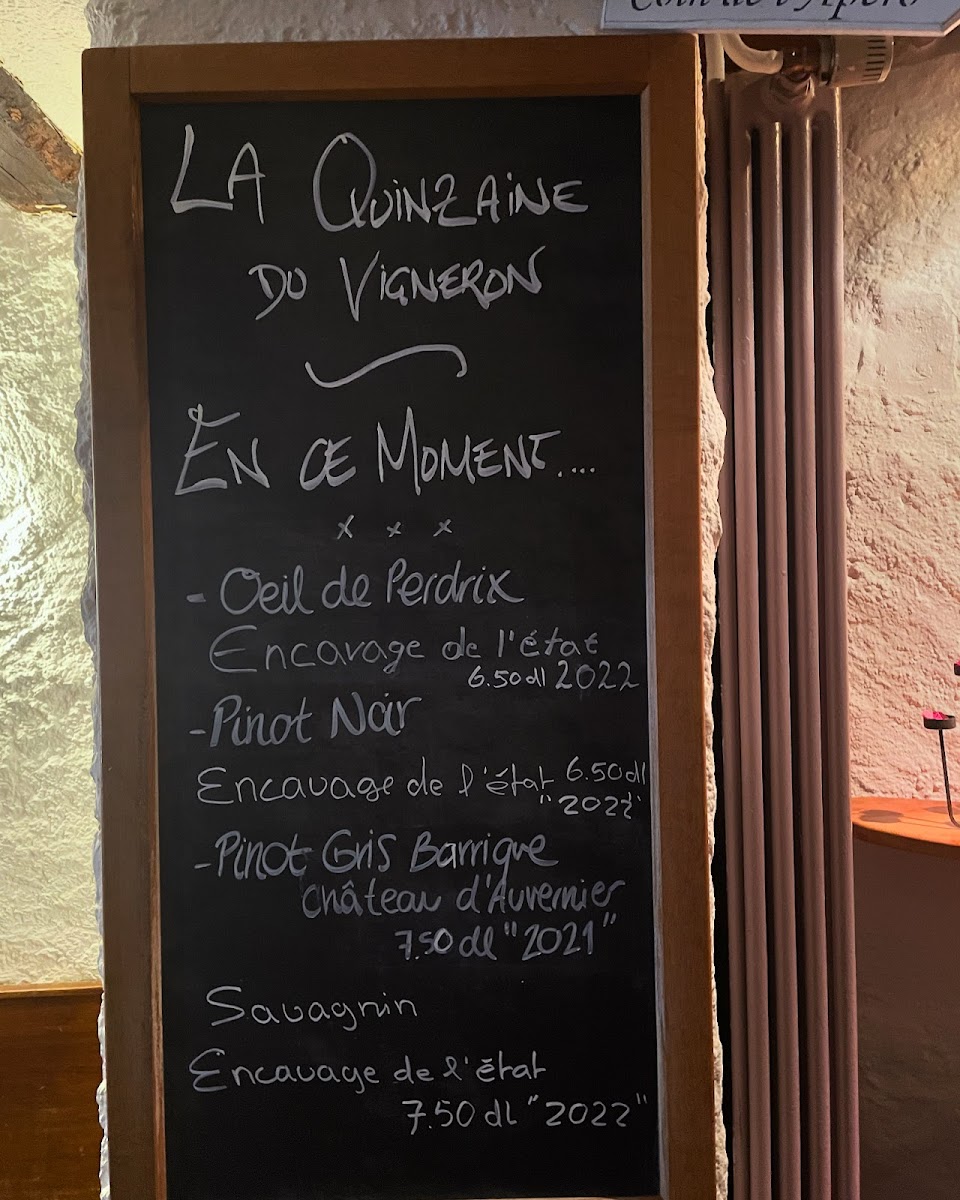 Coin de l'Apéro
LA QUINZAINE
DU VIGNERON
EN CE MOMENT....
x x x
- Oeil de Perdrix
Encavage de l'état
6.50 dl 2022
- Pinot Noir
Encavage de l'état 6.50 dl
"2022"
- Pinot Gris Barrique
Château d'Auvernier
7.50 dl "2021"
Savagnin
Encavage de l'état
7.50 dl "2022"